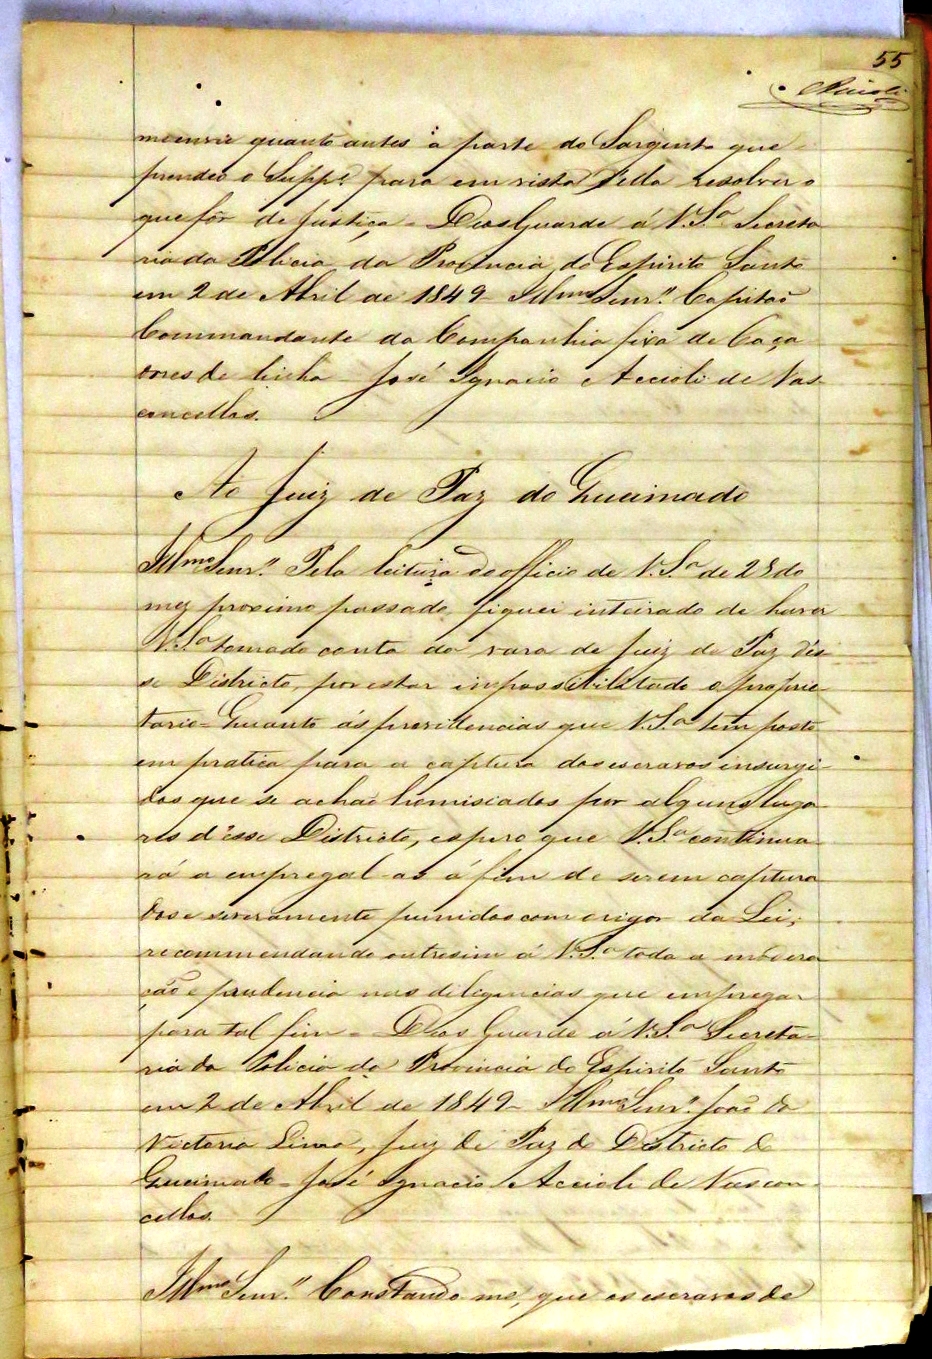 55
Accioli
me envie quanto antes a parte do Sargento que
prendeo o Suppe. para em vista della resolver o
que fôr de Justiça = Deos Guarde á V.Sa. Secreta
ria da Policia da Provincia do Espirito Santo
em 2 de Abril de 1849 - Illmo. Senr. Capitão
Commandante da Companhia fixa de Caça
dores de linha José Ignacio Accioli de Vas
concellos.
Ao Juiz de Paz do Queimado
Illmo. Senr. Pela leitura do officio de V.Sa. de 28 do
mez proximo passado, fiquei inteirado de haver
V.Sa. tomado conta da vara de Juiz de Paz d'es
se Districto, por estar impossibilitado o proprie
tario = Quanto ás providencias que V.Sa. tem posto
em pratica para a captura dos escravos insurgi-
dos que se achão homisiados por alguns luga
res d'esse Districto, espero que V.Sa. continua
rá a empregal-as á fim de serem captura
dos e severamente punidos com o rigor da Lei;
recommendando outresim á V.Sa. toda a modera
ção e prudencia nas diligencias que empregar
para tal fim = Deos Guarde á V.Sa. Secreta-
ria da Policia da Provincia do Espirito Santo
em 2 de Abril de 1849 - Illmo. Senr. João da
Victoria Lima, Juiz de Paz do Districto do
Queimado = José Ignacio Accioli de Vascon-
cellos.
Illmo. Senr. Constando-me, que os escravos de